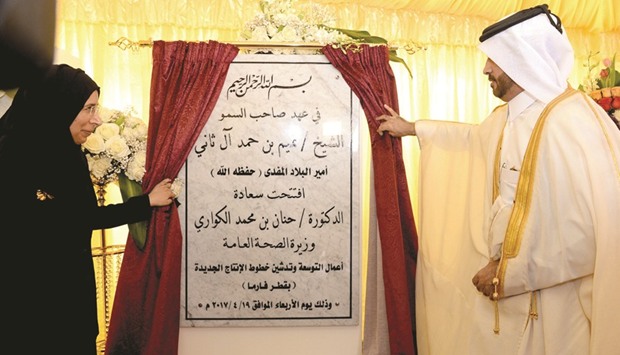 بسم الله الرحمن الرحيم
في عهد صاحب السمو
الشيخ / تميم بن حمد آل ثاني
أمير البلاد المفدى ( حفظه الله )
افتتحت سعادة
الدكتورة / حنان بن محمد الكواري
وزيرة الصحة العامة
أعمال التوسعة وتدشين خطوط الإنتاج الجديدة
( بقطر فارما )
وذلك يوم الأربعاء الموافق ٢٠١٧/٤/١٩ م